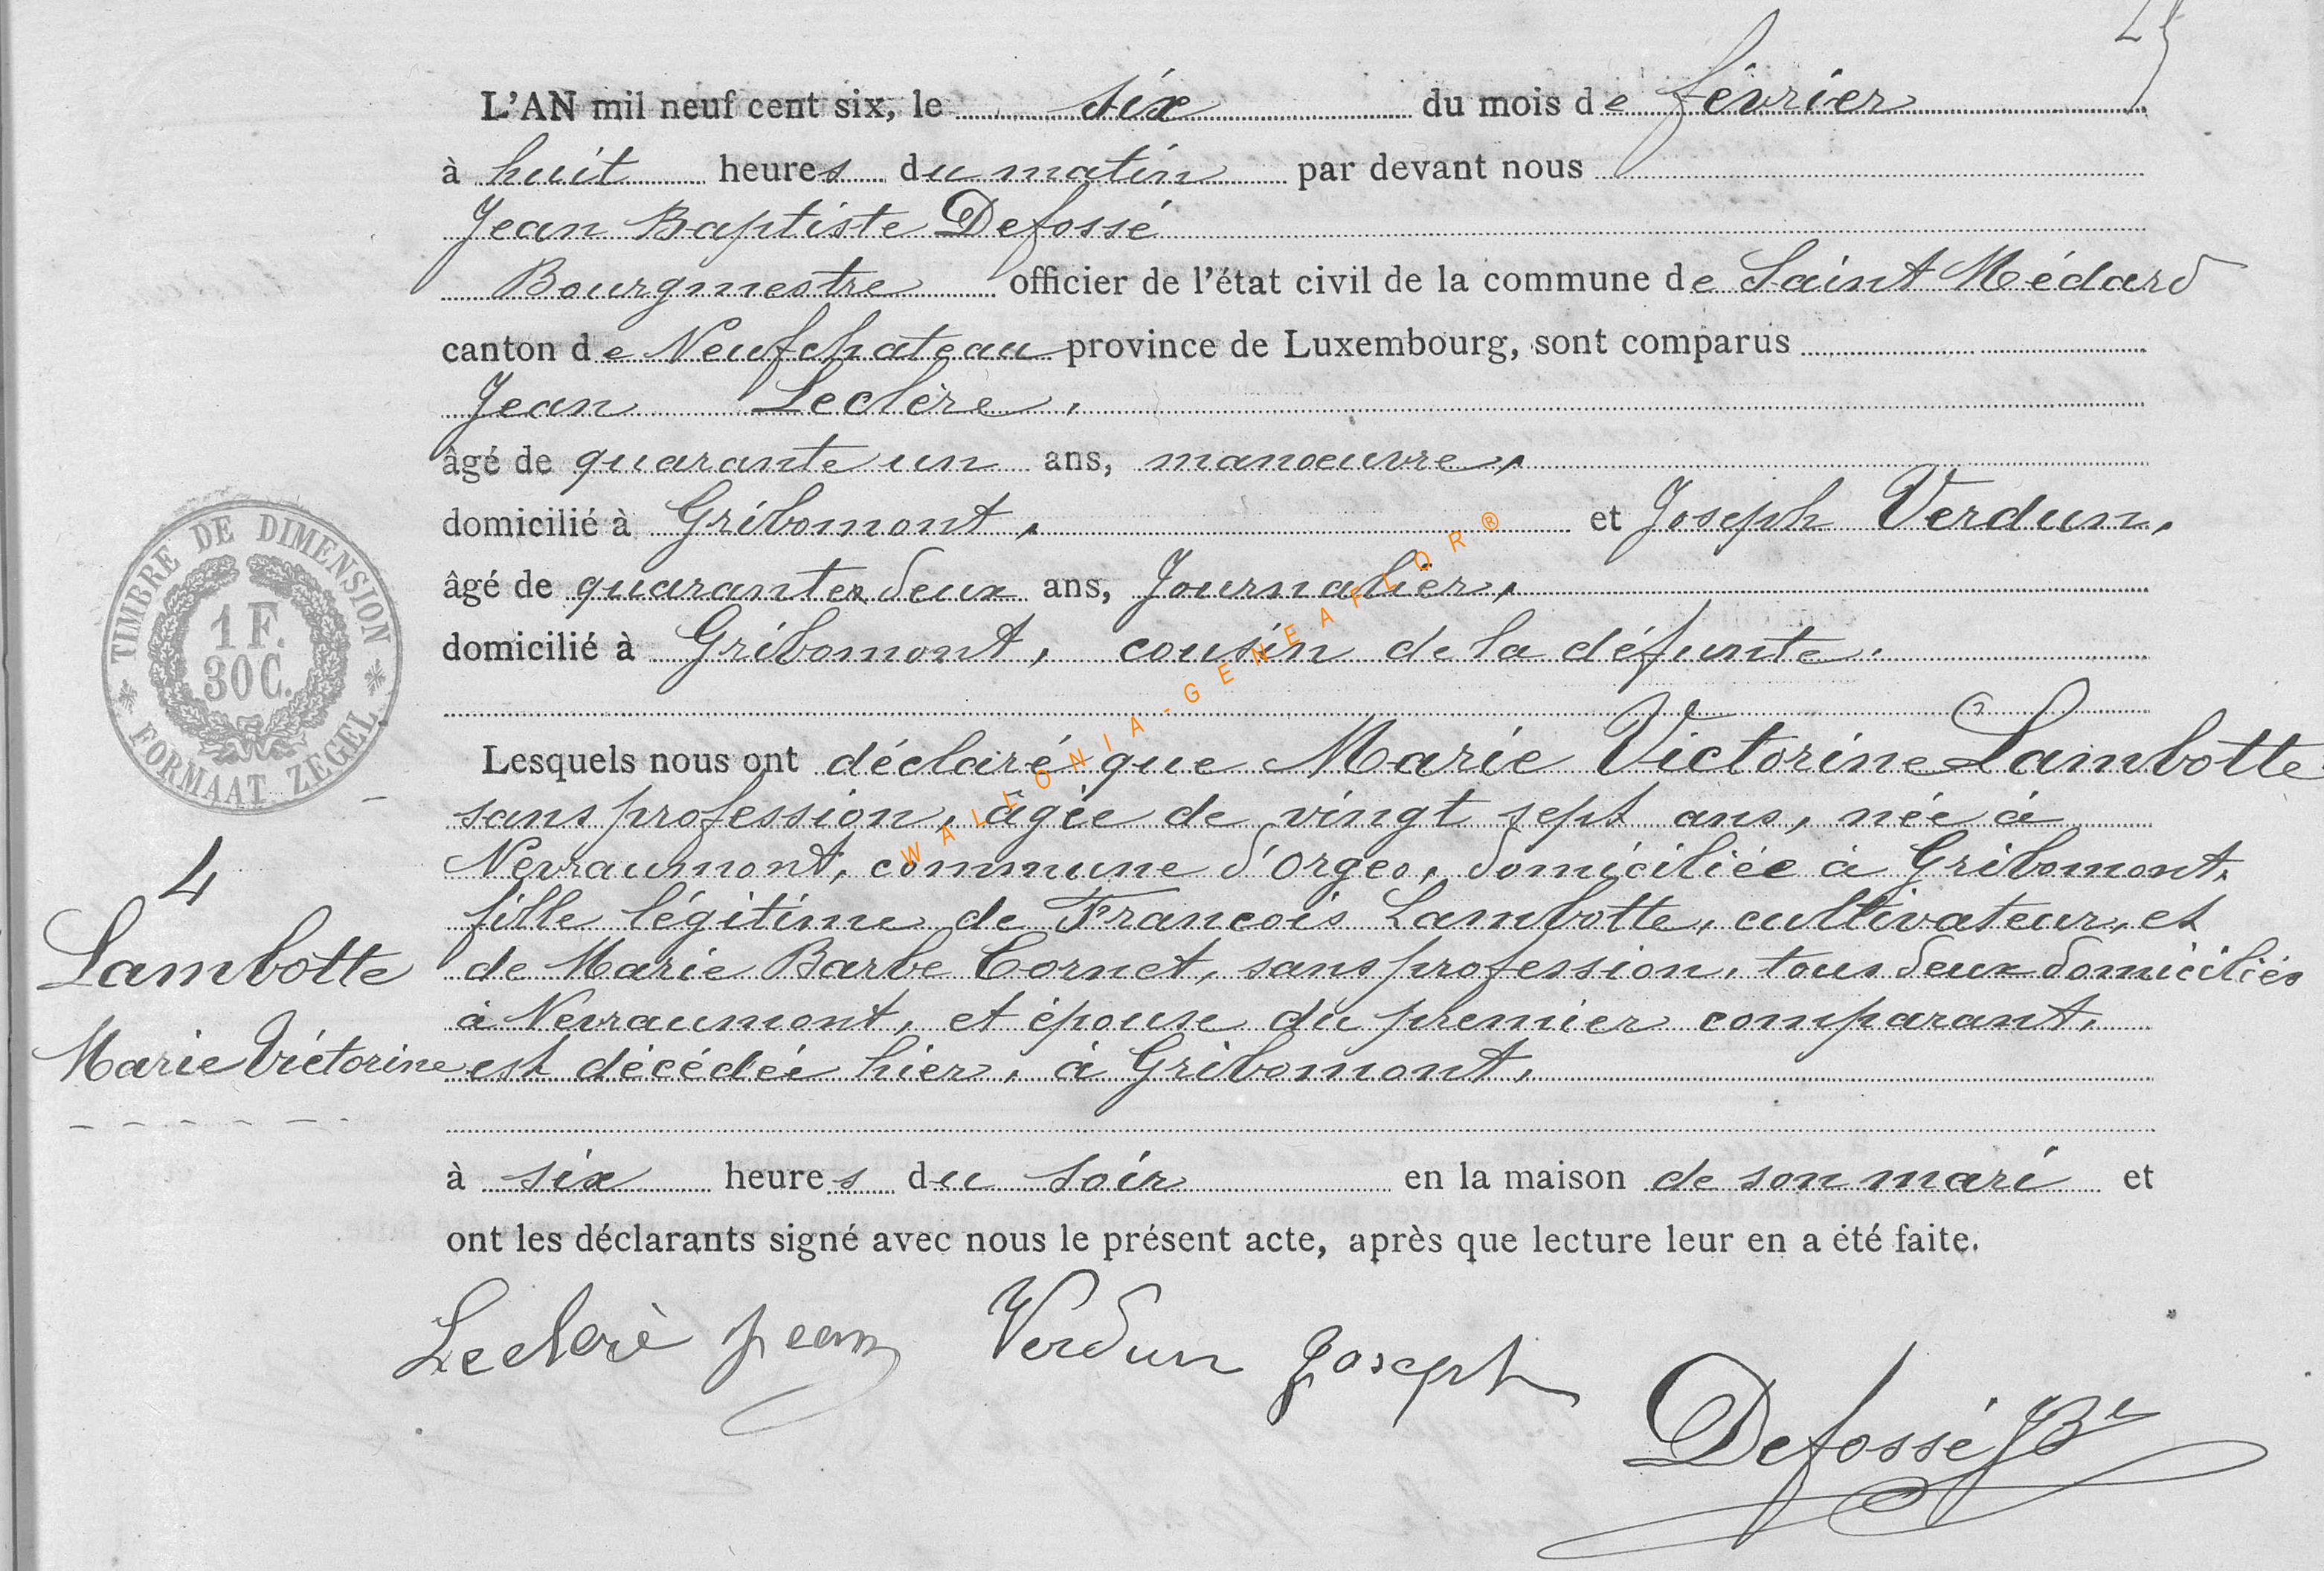 L'AN mil neuf cent six, le six du mois de février
à huit heures du matin par devant nous
Jean Baptiste Defossé
Bourgmestre officier de l'état civil de la commune de Saint Médard
canton de Neufchateau province de Luxembourg, sont comparus
Jean Leclère,
âgé de quarante un ans, manoeuvre,
domicilié à Gribomont, et Joseph Verdun,
âgé de quarante deux ans, Journalier,
domicilié à Gribomont, cousin de la défunte.
TIMBRE DE DIMENSION
1 F.
30 C.
FORMAAT ZEGEL
WALLONIA-GENEAFLOR®
Lesquels nous ont déclaré que Marie Victorine Lambotte
sans profession, âgée de vingt sept ans, née à
Nevraumont, commune d'Orgeo, domiciliée à Gribomont,
fille légitime de François Lambotte, cultivateur, et
de Marie Barbe Cornet, sans profession, tous deux domiciliés
à Nevraumont, et épouse du premier comparant,
est décédée hier, à Gribomont,
4
Lambotte
Marie Victorine
à six heures du soir en la maison de son mari et
ont les déclarants signé avec nous le présent acte, après que lecture leur en a été faite.
Leclerè jean Verdun Joseph
Defossé JBte